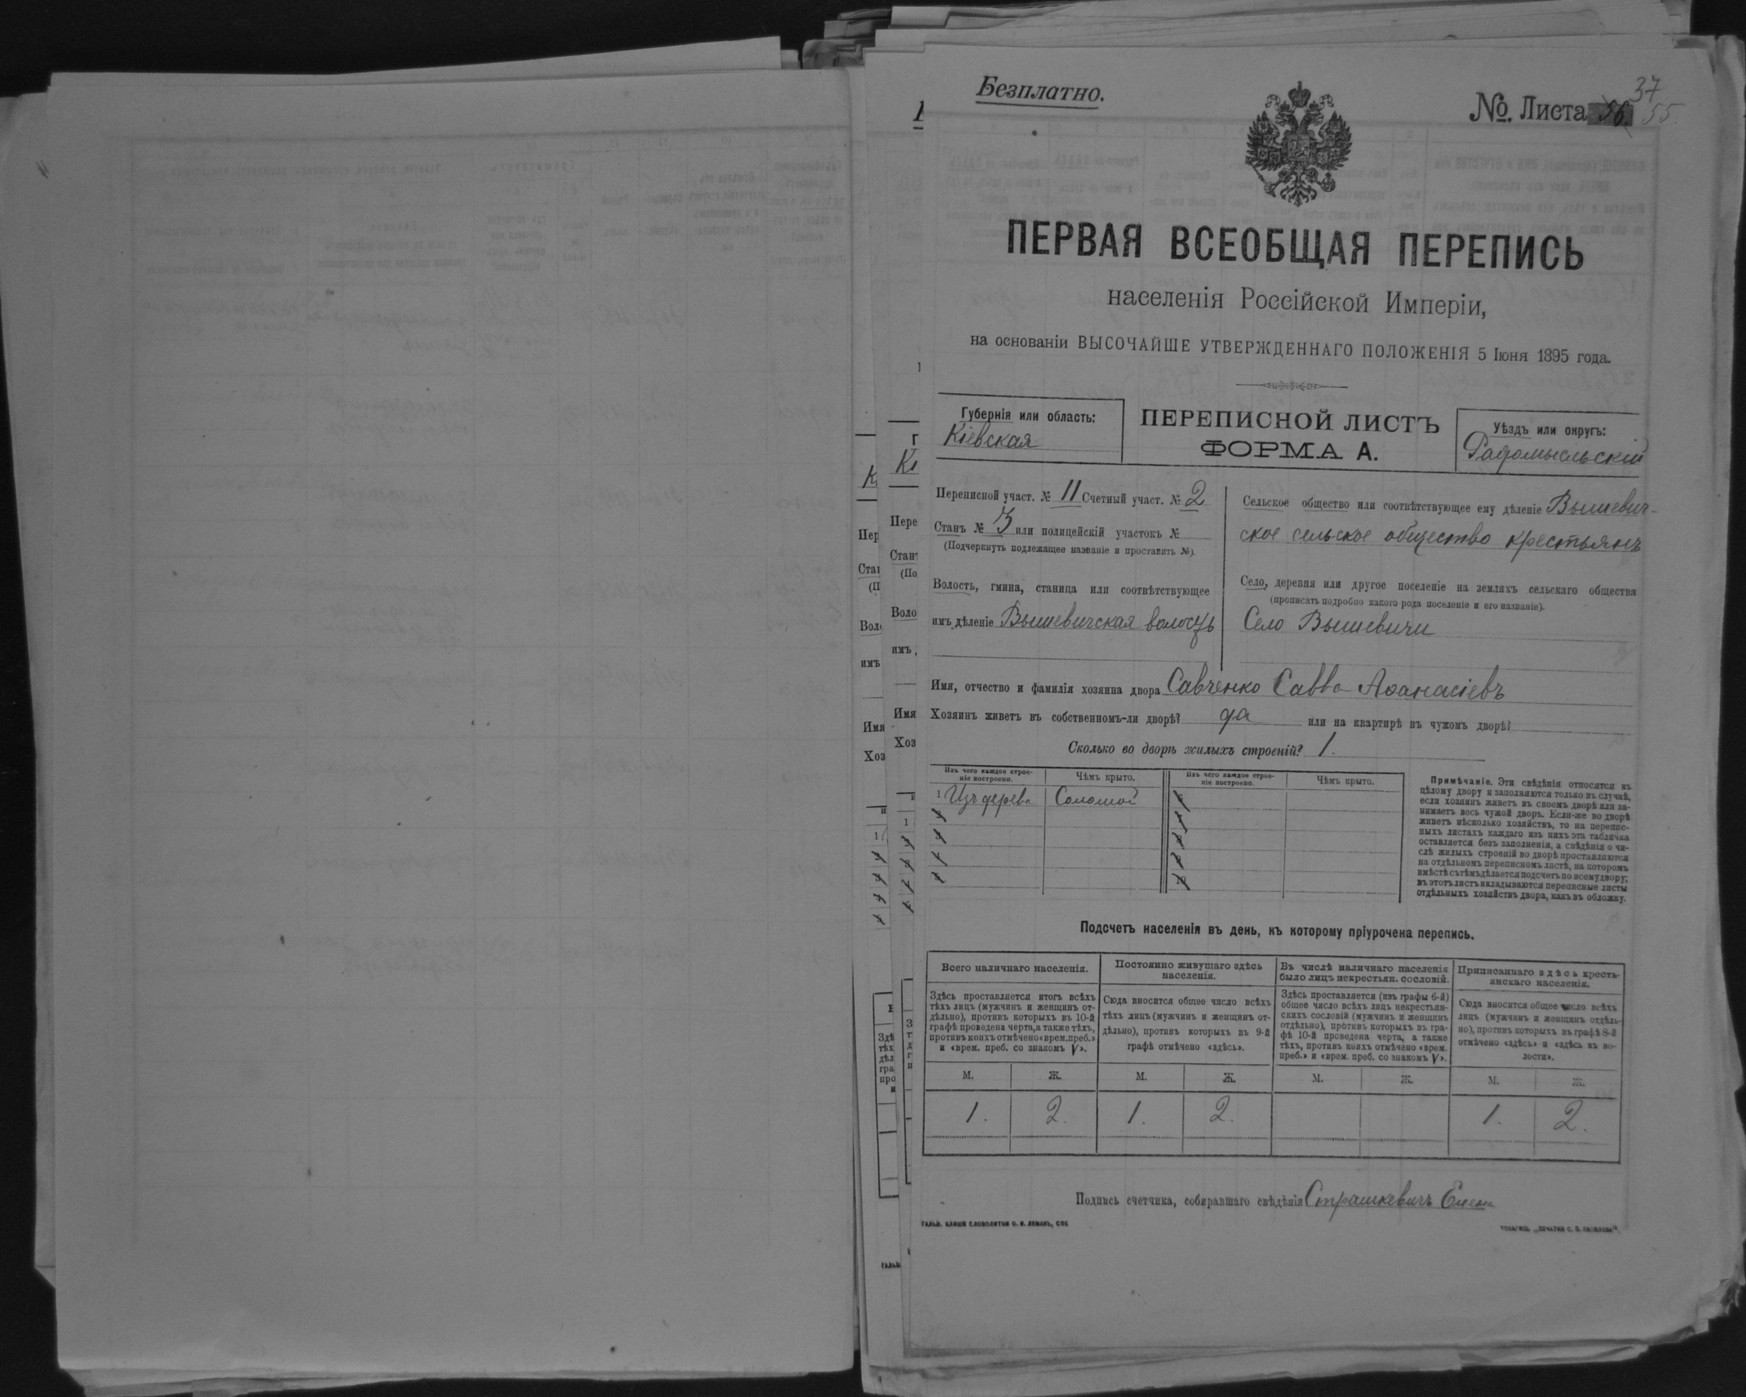 Безплатно.
№. Листа 56. 37
55.
ПЕРВАЯ ВСЕОБЩАЯ ПЕРЕПИСЬ
населенія Россійской Имперіи,
на основаніи ВЫСОЧАЙШЕ УТВЕРЖДЕННАГО ПОЛОЖЕНІЯ 5 Іюня 1895 года.
Губернія или область:
Кіевская
ПЕРЕПИСНОЙ ЛИСТЪ
ФОРМА А.
Уѣздъ или округъ:
Радомысльскій
Переписной участ. № 11 Счетный участ. № 2
Станъ № 3 или полицейскій участокъ №
(Подчеркнуть подлежащее названіе и проставить №).
Волость, гмина, станица или соотвѣтствующее
имъ дѣленіе Вышевичская волость
Сельское общество или соотвѣтствующее ему дѣленіе Вышевич-
ское сельское общество крестьянъ
Село, деревня или другое поселеніе на земляхъ сельскаго общества
(прописать подробно какого рода поселеніе и его названіе).
Село Вышевичи
Имя, отчество и фамилія хозяина двора Савченко Савва Аѳанасіевъ
Хозяинъ живетъ въ собственномъ-ли дворѣ? да или на квартирѣ въ чужомъ дворѣ?
Сколько во дворѣ жилыхъ строеній? 1.
Изъ чего каждое строе-
ніе построено.
Чѣмъ крыто.
Изъ чего каждое строе-
ніе построено.
Чѣмъ крыто.
1 Изъ дерева Соломой
Примѣчаніе. Эти свѣдѣнія относятся къ
цѣлому двору и заполняются только въ случаѣ,
если хозяинъ живетъ въ своемъ дворѣ или за-
нимаетъ весь чужой дворъ. Если-же во дворѣ
живетъ нѣсколько хозяйствъ, то на перепис-
ныхъ листахъ каждаго изъ нихъ эта табличка
оставляется безъ заполненія, а свѣдѣнія о чи-
слѣ жилыхъ строеній во дворѣ проставляются
на отдѣльномъ переписномъ листѣ, на которомъ
вмѣстѣ съ тѣмъ дѣлается подсчетъ по всему двору;
въ этотъ листъ вкладываются переписные листы
отдѣльныхъ хозяйствъ двора, какъ въ обложку.
Подсчетъ населенія въ день, къ которому пріурочена перепись.
Всего наличнаго населенія.
Здѣсь проставляется итогъ всѣхъ
тѣхъ лицъ (мужчинъ и женщинъ от-
дѣльно), противъ которыхъ въ 10-й
графѣ проведена черта, а также тѣхъ,
противъ коихъ отмѣчено «врем. преб.»
и «врем. преб. со знакомъ V».
Постоянно живущаго здѣсь
населенія.
Сюда вносится общее число всѣхъ
тѣхъ лицъ (мужчинъ и женщинъ от-
дѣльно), противъ которыхъ въ 9-й
графѣ отмѣчено «здѣсь».
Въ числѣ наличнаго населенія
было лицъ некрестьян. сословій.
Здѣсь проставляется (изъ графы 6-й)
общее число всѣхъ лицъ некрестьян-
скихъ сословій (мужчинъ и женщинъ
отдѣльно), противъ которыхъ въ гра-
фѣ 10-й проведена черта, а также
тѣхъ, противъ коихъ отмѣчено «врем.
преб.» и «врем. преб. со знакомъ V».
Приписаннаго здѣсь кресть-
янскаго населенія.
Сюда вносится общее число всѣхъ
лицъ (мужчинъ и женщинъ отдѣль-
но), противъ которыхъ въ графѣ 8-й
отмѣчено «здѣсь» и «здѣсь въ во-
лости».
М. Ж. М. Ж. М. Ж. М. Ж.
1. 2. 1. 2. 1. 2.
Подпись счетчика, собиравшаго свѣдѣнія Страшкевичъ